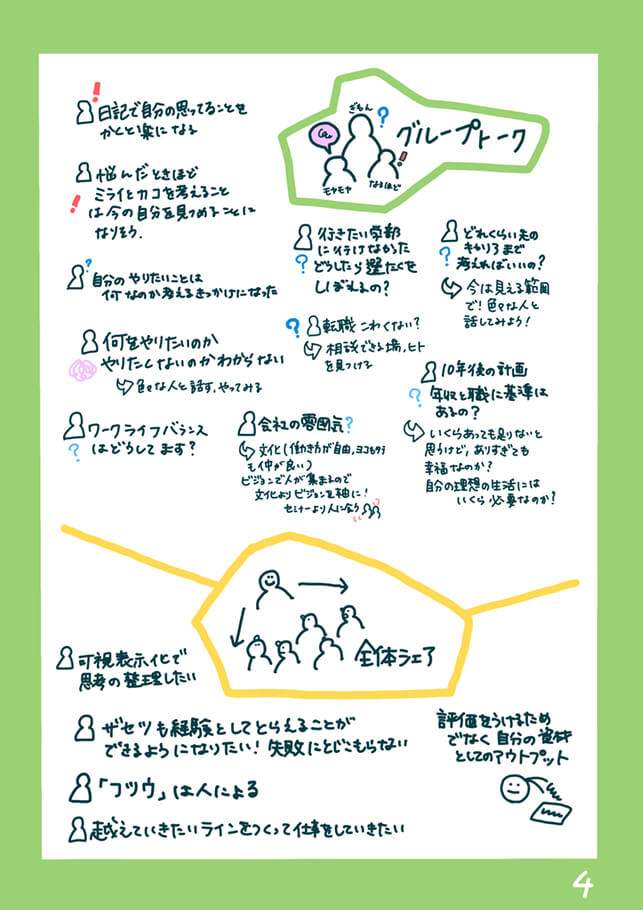 日記で自分の思ってることを
かくと楽になる
悩んだときほど
ミライとカコを考えること
は今の自分を見つめることに
なりそう.
自分のやりたいことは
何なのか考えるきっかけになった
何をやりたいのか
やりたくないのかわからない
色々な人と話す,やってみる
ワークライフバランス
はどうしてます?
ぎもん
グループトーク
モヤモヤ
なるほど
行きたい学部
に行けなかった
どうしたら選たくを
しぼれるの?
どれくらい先の
キャリアまで
考えればいいの?
今は見える範囲
で!色々な人と
話してみよう!
転職こわくない?
相談できる場,ヒト
を見つける
10年後の計画
年収と職に基準は
あるの?
いくらあっても足りないと
思うけど,ありすぎても
幸福なのか?
自分の理想の生活には
いくら必要なのか?
会社の雰囲気?
文化(働き方が自由,ヨコもタテ
も仲が良い)
ビジョンで人が集まるので
文化よりビジョンを軸に!
セミナーより人に会う
全体シェア
可視表示化で
思考の整理したい
ザセツも経験としてとらえることが
できるようになりたい!失敗にとじこもらない
「フツウ」は人による
越えていきたいラインをつくって仕事をしていきたい
評価をうけるため
でなく自分の資材
としてのアウトプット
4